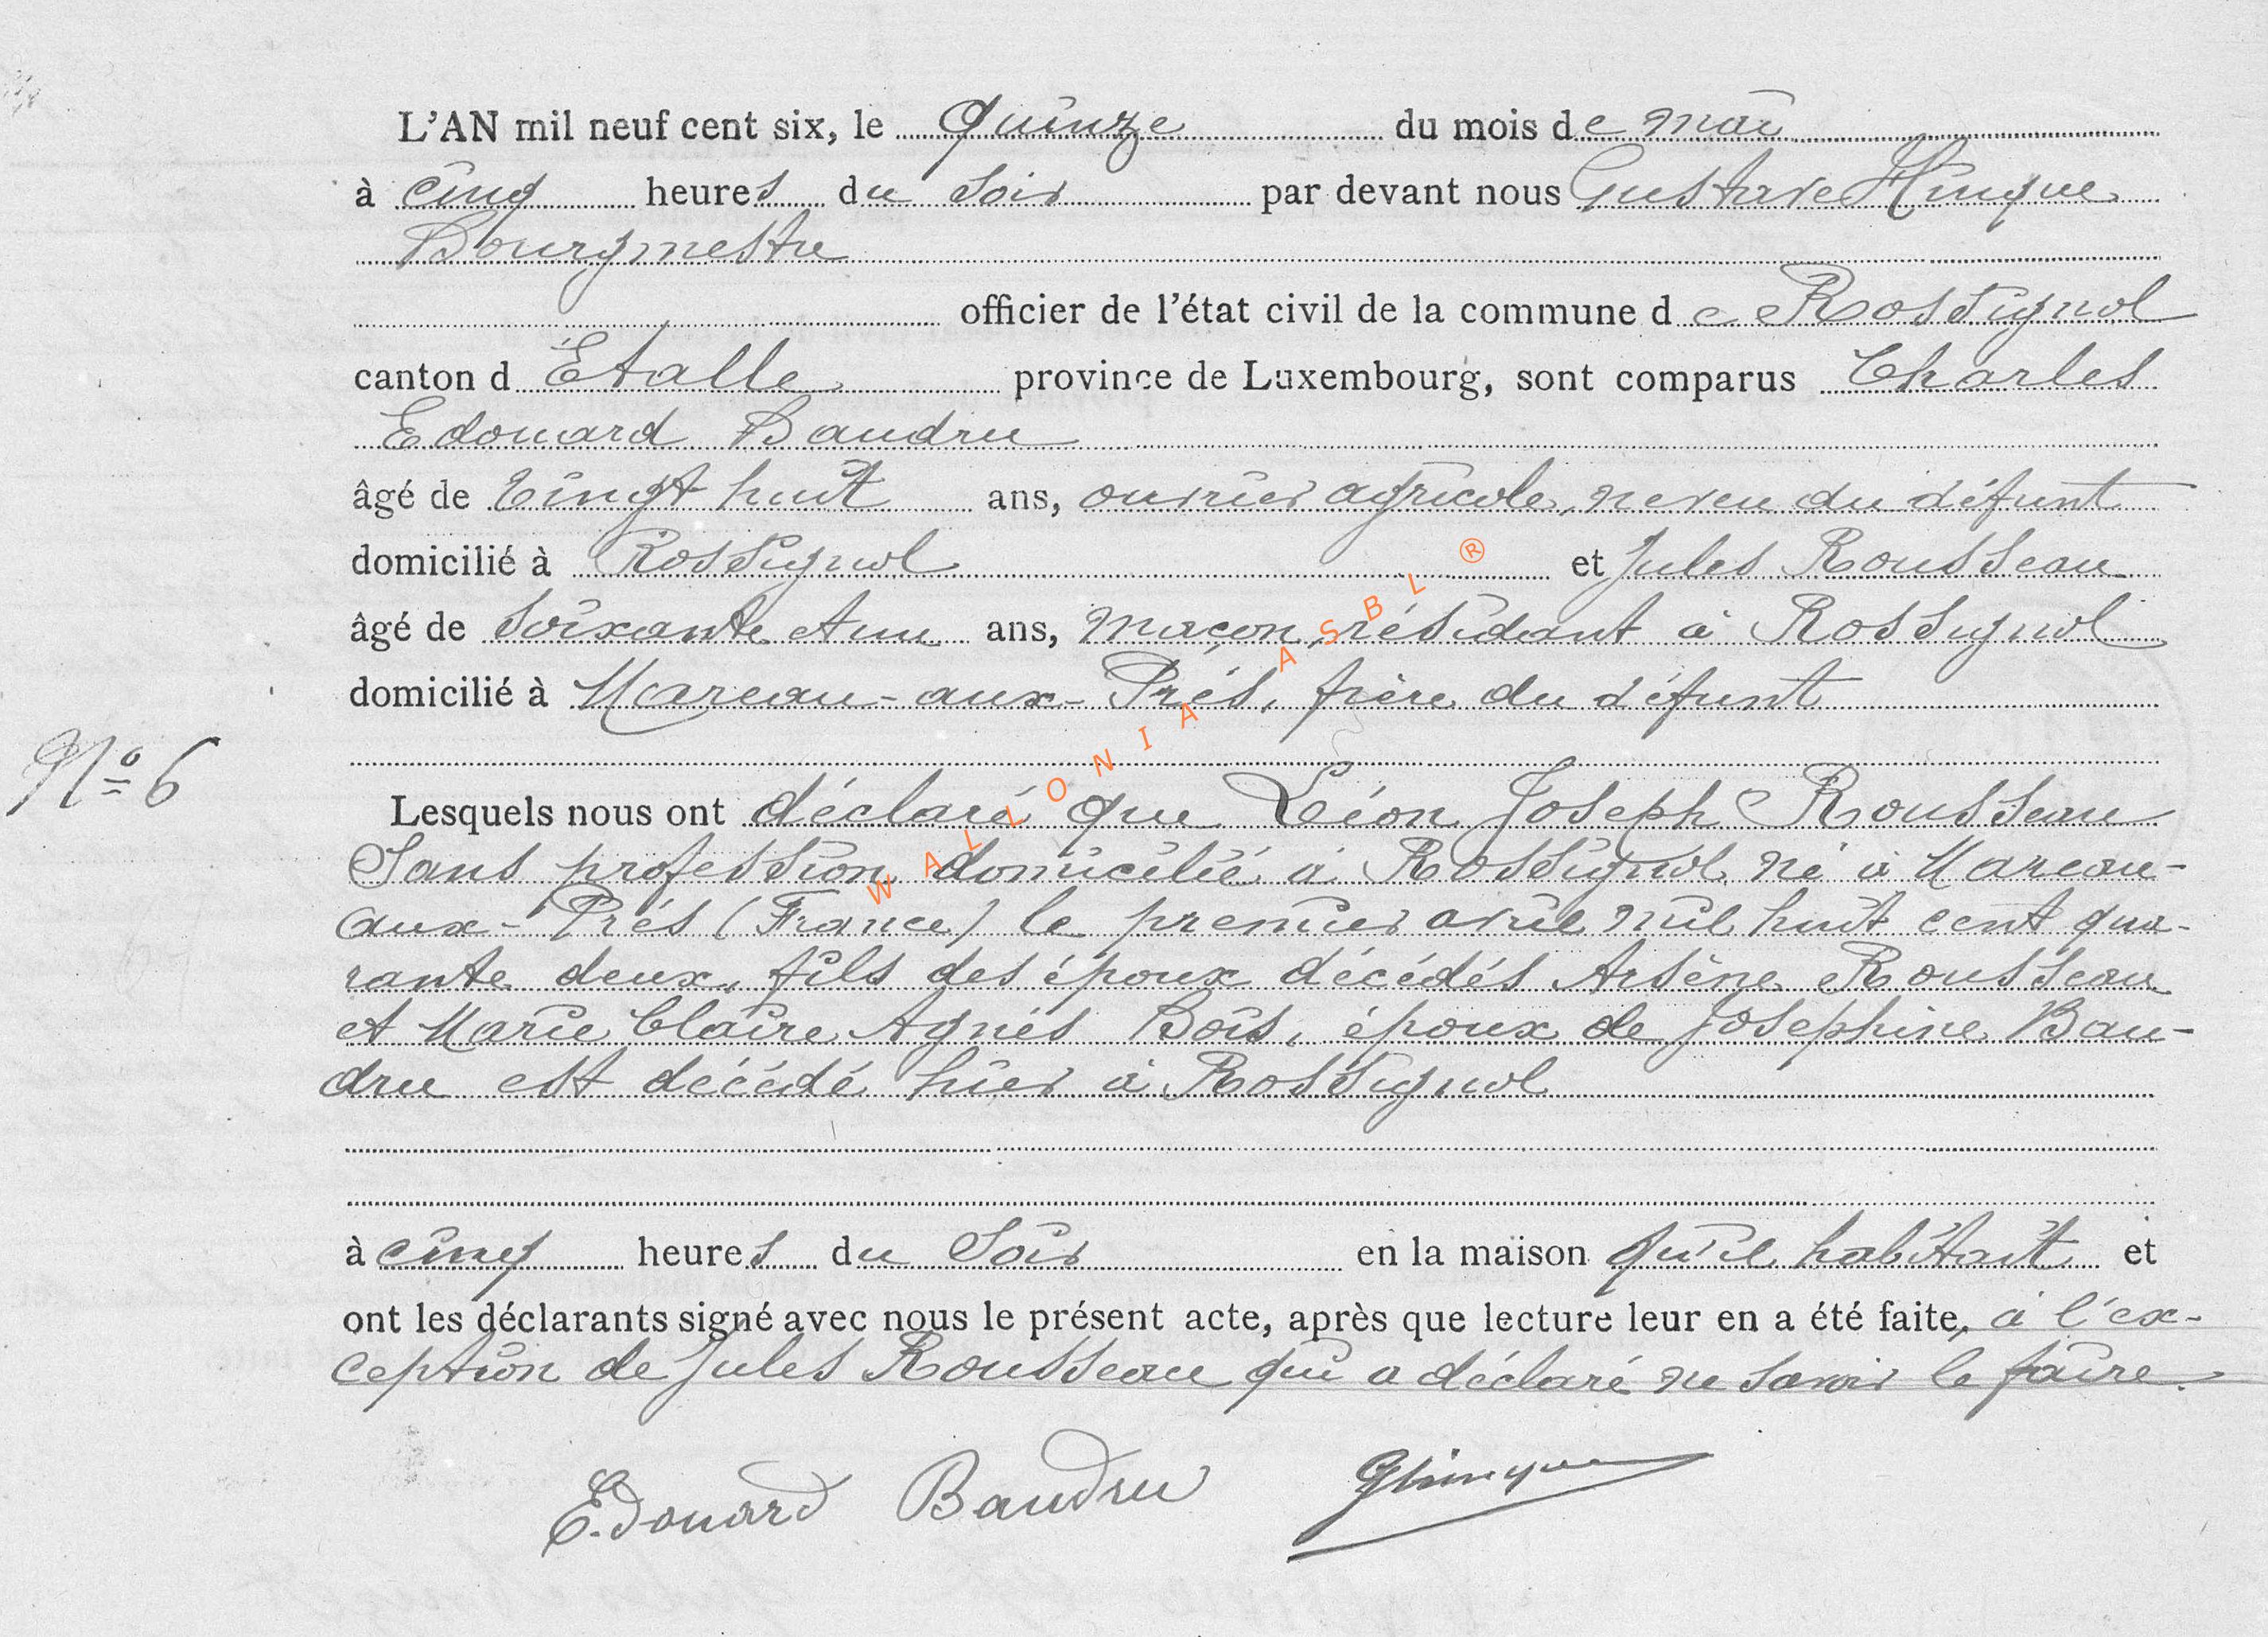 L'AN mil neuf cent six, le quinze du mois de mai
à cinq heures du soir par devant nous Gustave Hinque
Bourgmestre
officier de l'état civil de la commune de Rossignol
canton d Etalle province de Luxembourg, sont comparus Charles
Edouard Baudru
âgé de vingt huit ans, ouvrier agricole, neveu du défunt
domicilié à Rossignol et Jules Rousseau
âgé de soixante et un ans, maçon, résidant à Rossignol
domicilié à Mareau-aux-Prés, frère du défunt
N° 6
Lesquels nous ont déclaré que Léon Joseph Rousseau
sans profession domicilié à Rossignol né à Mareau-
aux-Prés (France) le premier avril mil huit cent qua-
rante deux, fils des époux décédés Arsène Rousseau
et Marie Claire Agnès Bois, époux de Joséphine Bau-
dru est décédé hier à Rossignol
à cinq heures du soir en la maison qu'il habitait et
ont les déclarants signé avec nous le présent acte, après que lecture leur en a été faite, à l'ex-
ception de Jules Rousseau qui a déclaré ne savoir le faire.
E. Douard Baudru GHinque
WALLONIA ASBL ®